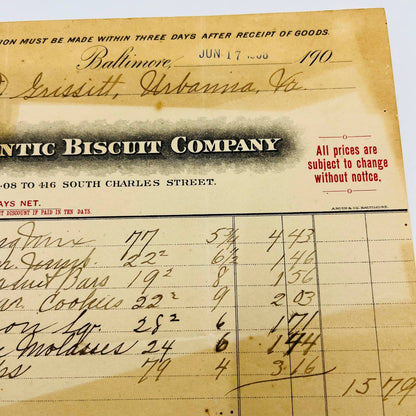 TION MUST BE MADE WITHIN THREE DAYS AFTER RECEIPT OF GOODS.
Baltimore, JUN 17 1908 190
Grissitt, Urbanna, Va.
NTIC BISCUIT COMPANY
-08 TO 416 SOUTH CHARLES STREET.
All prices are
subject to change
without notice.
AYS NET.
T DISCOUNT IF PAID IN TEN DAYS.
77 5¾ 4 43
22² 6½ 1 46
Bars 19² 8 1 56
Cookies 22² 9 2 03
Sgr. 28² 6 1 71
Molasses 24 6 1 44
79 4 3 16
15 79